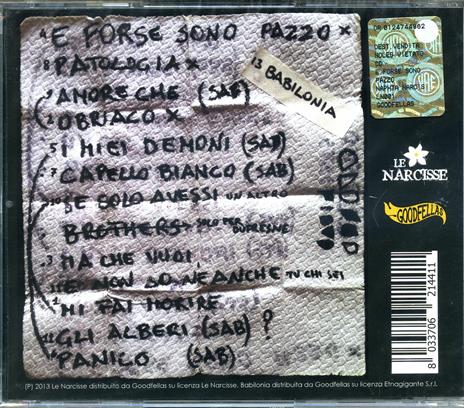 4 E FORSE SONO PAZZO X
8 PATOLOGIA X
9 AMORE CHE (SAB)
2 OBRIACO X
13 BABILONIA
5 I MIEI DEMONI (SAB)
7 CAPELLO BIANCO (SAB)
10 SE SOLO AVESSI UN ALTRO
BROTHERS SOLO PER
3 MA CHE VUOI
E NON SO NEANCHE TU CHI SEI
MI FAI MORIRE
GLI ALBERI (SAB) ?
PANICO (SAB)
DEST. VENDITA
NOLEG. VIETATO
CD
E FORSE SONO
PAZZO
GOODFELLAS
SIAE
LE
NARCISSE
GOODFELLAS
8 033706 214411
(P) 2013 Le Narcisse distribuito da Goodfellas su licenza Le Narcisse. Babilonia distribuita da Goodfellas su licenza Etnagigante S.r.l.